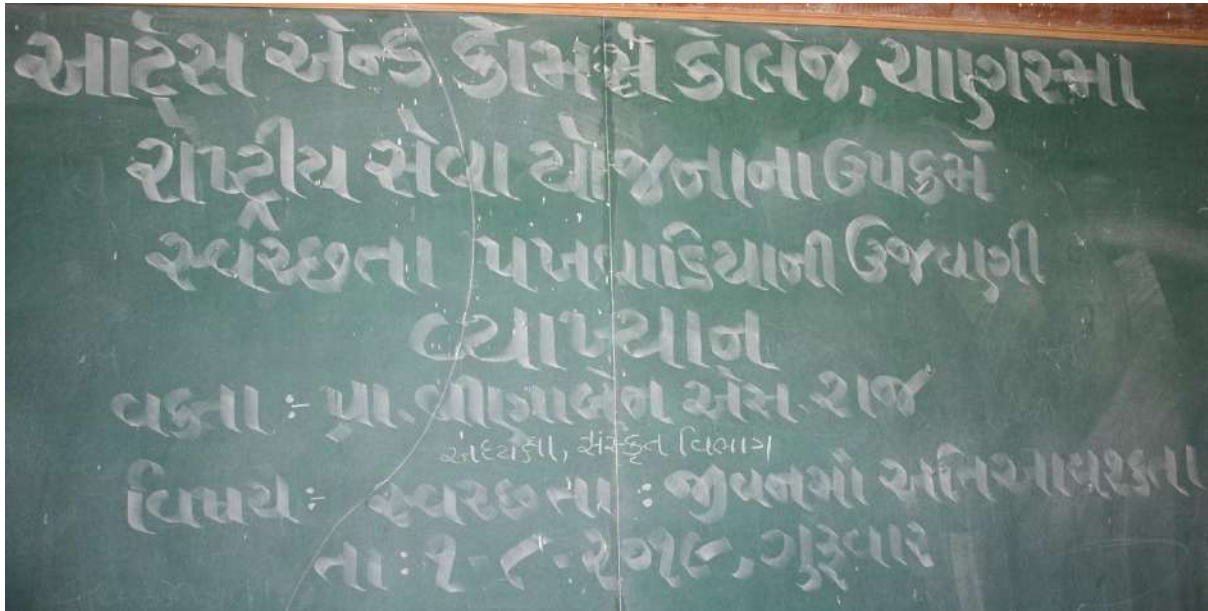 આર્ટસ એન્ડ કોમર્સ કોલેજ, ચાણસ્મા
રાષ્ટ્રીય સેવા યોજનાના ઉપક્રમે
સ્વચ્છતા પખવાડિયાની ઉજવણી
વ્યાખ્યાન
વક્તા :- પ્રા. વીણાબેન એસ. રાજ
અધ્યક્ષા, સંસ્કૃત વિભાગ
વિષય :- સ્વચ્છતા : જીવનમાં અતિઆવશ્કતા
તા : ૧-૮-૨૦૧૯, ગુરૂવાર